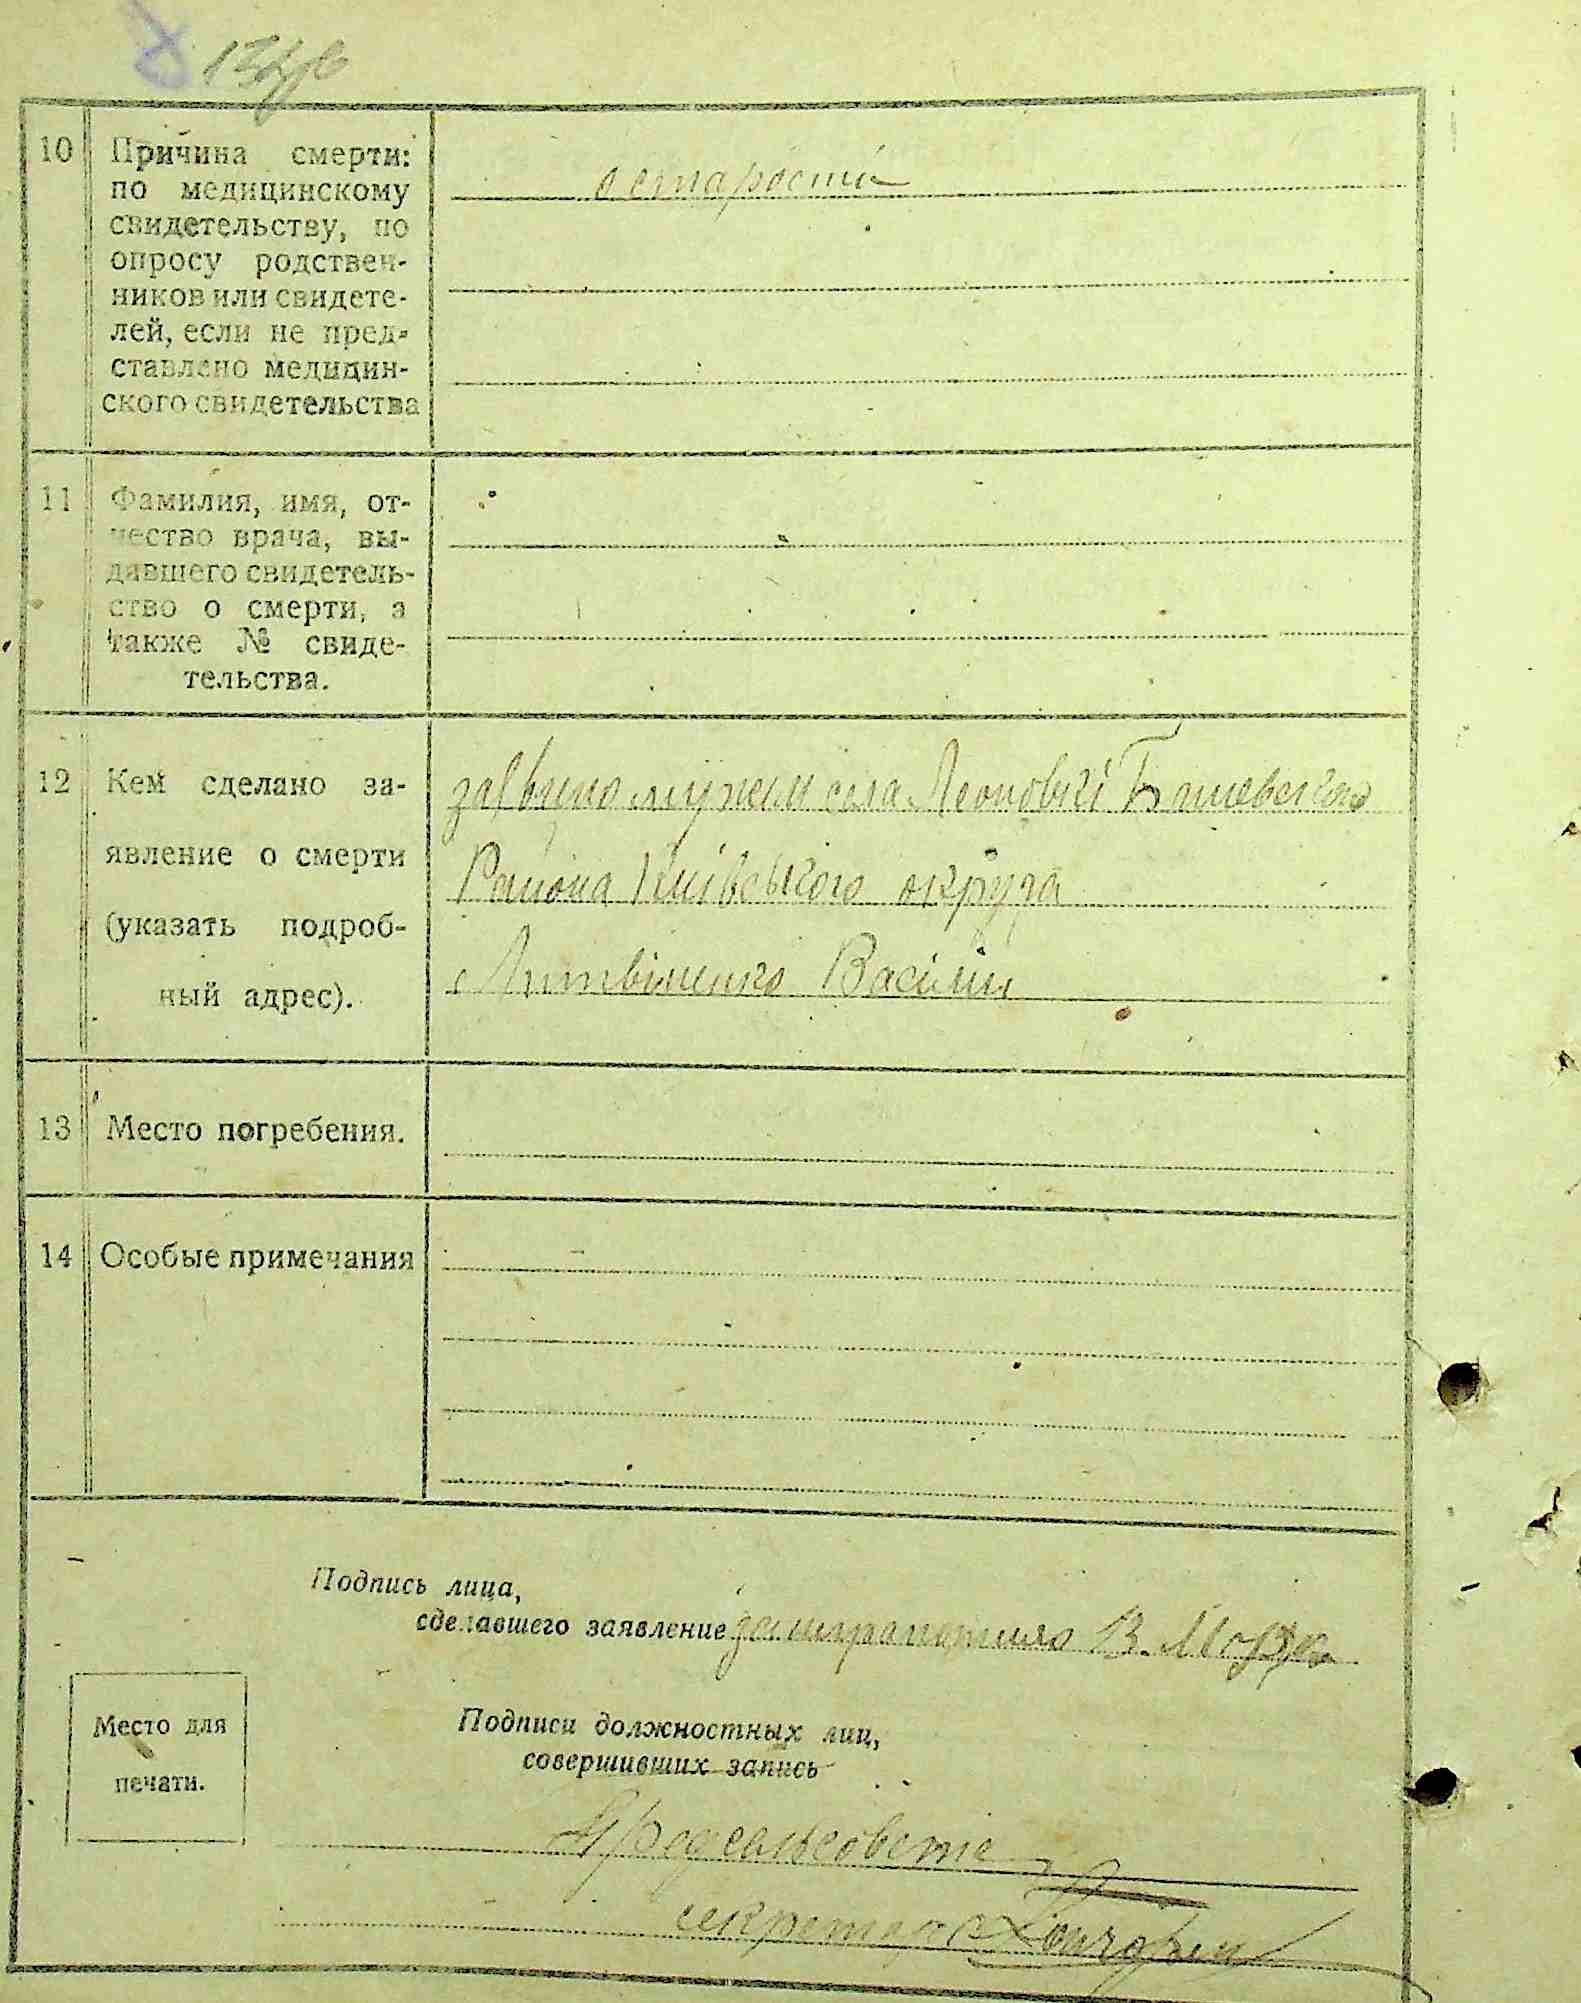 10
Причина смерти:
по медицинскому
свидетельству, по
опросу родствен-
ников или свидете-
лей, если не пред-
ставлено медицин-
ского свидетельства
старости
11
Фамилия, имя, от-
чество врача, вы-
давшего свидетель-
ство о смерти, а
также № свиде-
тельства.
12
Кем сделано за-
явление о смерти
(указать подроб-
ный адрес).
мужем села Леоновкі
Района округа
Литвіненко Василий
13
Место погребения.
14
Особые примечания
Подпись лица,
сделавшего заявление
Подписи должностных лиц,
совершивших запись
Место для
печати.
Предсельсовета
секретарь